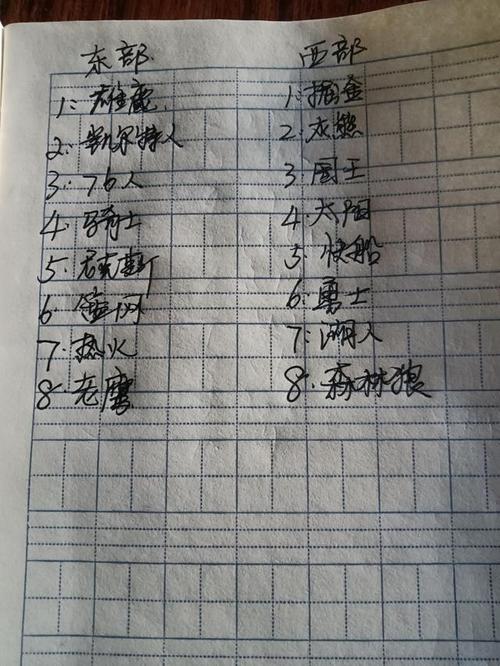 东部 西部
1:雄鹿 1:掘金
2:凯尔特人 2:灰熊
3:76人 3:国王
4:骑士 4:太阳
5:尼克斯 5:快船
6:篮网 6:勇士
7:热火 7:湖人
8:老鹰 8:森林狼